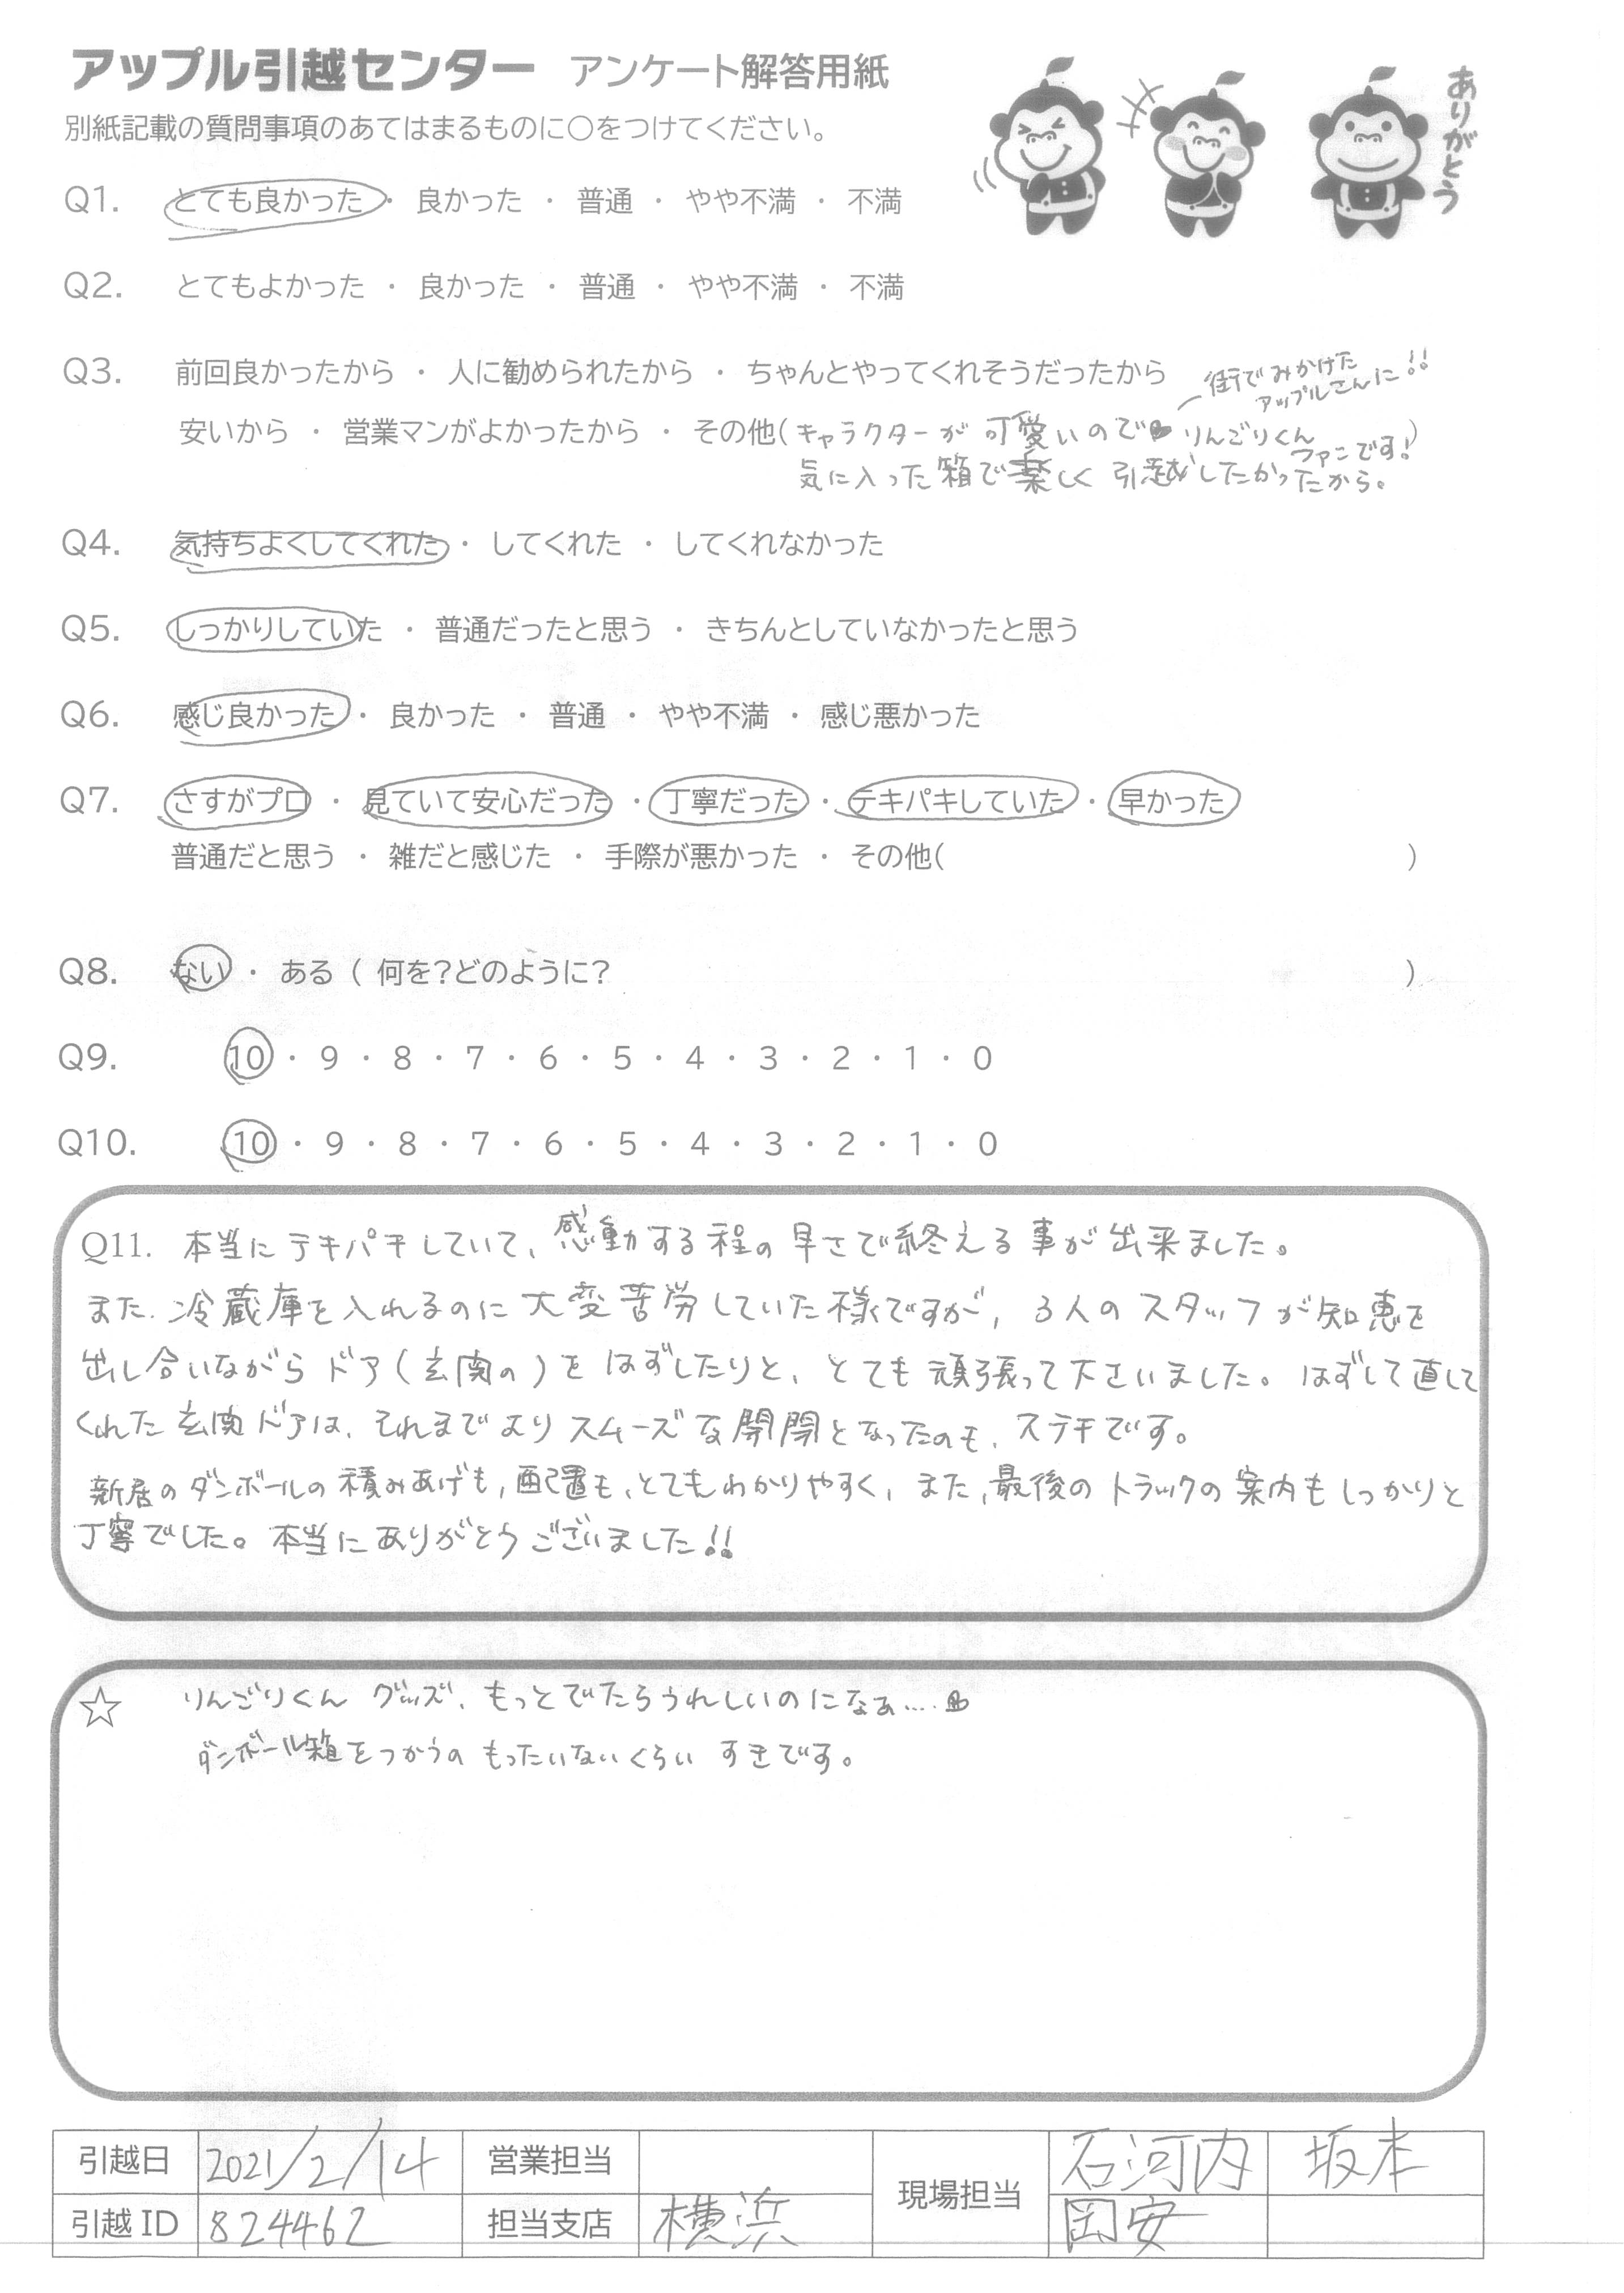 アップル引越センター アンケート解答用紙
ありがとう
別紙記載の質問事項のあてはまるものに○をつけてください。
Q1. とても良かった ・ 良かった ・ 普通 ・ やや不満 ・ 不満
Q2. とてもよかった ・ 良かった ・ 普通 ・ やや不満 ・ 不満
Q3. 前回良かったから ・ 人に勧められたから ・ ちゃんとやってくれそうだったから
街でみかけた
アップルさんに!!
安いから ・ 営業マンがよかったから ・ その他(キャラクターが可愛いので りんごりくん
ファンです! )
気に入った箱で楽しく引越ししたかったから。
Q4. 気持ちよくしてくれた ・ してくれた ・ してくれなかった
Q5. しっかりしていた ・ 普通だったと思う ・ きちんとしていなかったと思う
Q6. 感じ良かった ・ 良かった ・ 普通 ・ やや不満 ・ 感じ悪かった
Q7. さすがプロ ・ 見ていて安心だった ・ 丁寧だった ・ テキパキしていた ・ 早かった
普通だと思う ・ 雑だと感じた ・ 手際が悪かった ・ その他( )
Q8. ない ・ ある ( 何を?どのように? )
Q9. 10 ・ 9 ・ 8 ・ 7 ・ 6 ・ 5 ・ 4 ・ 3 ・ 2 ・ 1 ・ 0
Q10. 10 ・ 9 ・ 8 ・ 7 ・ 6 ・ 5 ・ 4 ・ 3 ・ 2 ・ 1 ・ 0
Q11. 本当にテキパキしていて、感動する程の早さで終える事が出来ました。
また、冷蔵庫を入れるのに大変苦労していた様ですが、3人のスタッフが知恵を
出し合いながらドア(玄関の)をはずしたりと、とても頑張って下さいました。はずして直して
くれた玄関ドアは、それまでよりスムーズな開閉となったのも、ステキです。
新居のダンボールの積みあげも,配置も、とてもわかりやすく、また,最後のトラックの案内もしっかりと
丁寧でした。本当にありがとうございました!!
☆ りんごりくん グッズ、もっとでたらうれしいのになぁ....
ダンボール箱をつかうの もったいないくらい すきです。
引越日 2021/2/14 営業担当 現場担当 石河内 坂本
引越ID 824462 担当支店 横浜 岡安